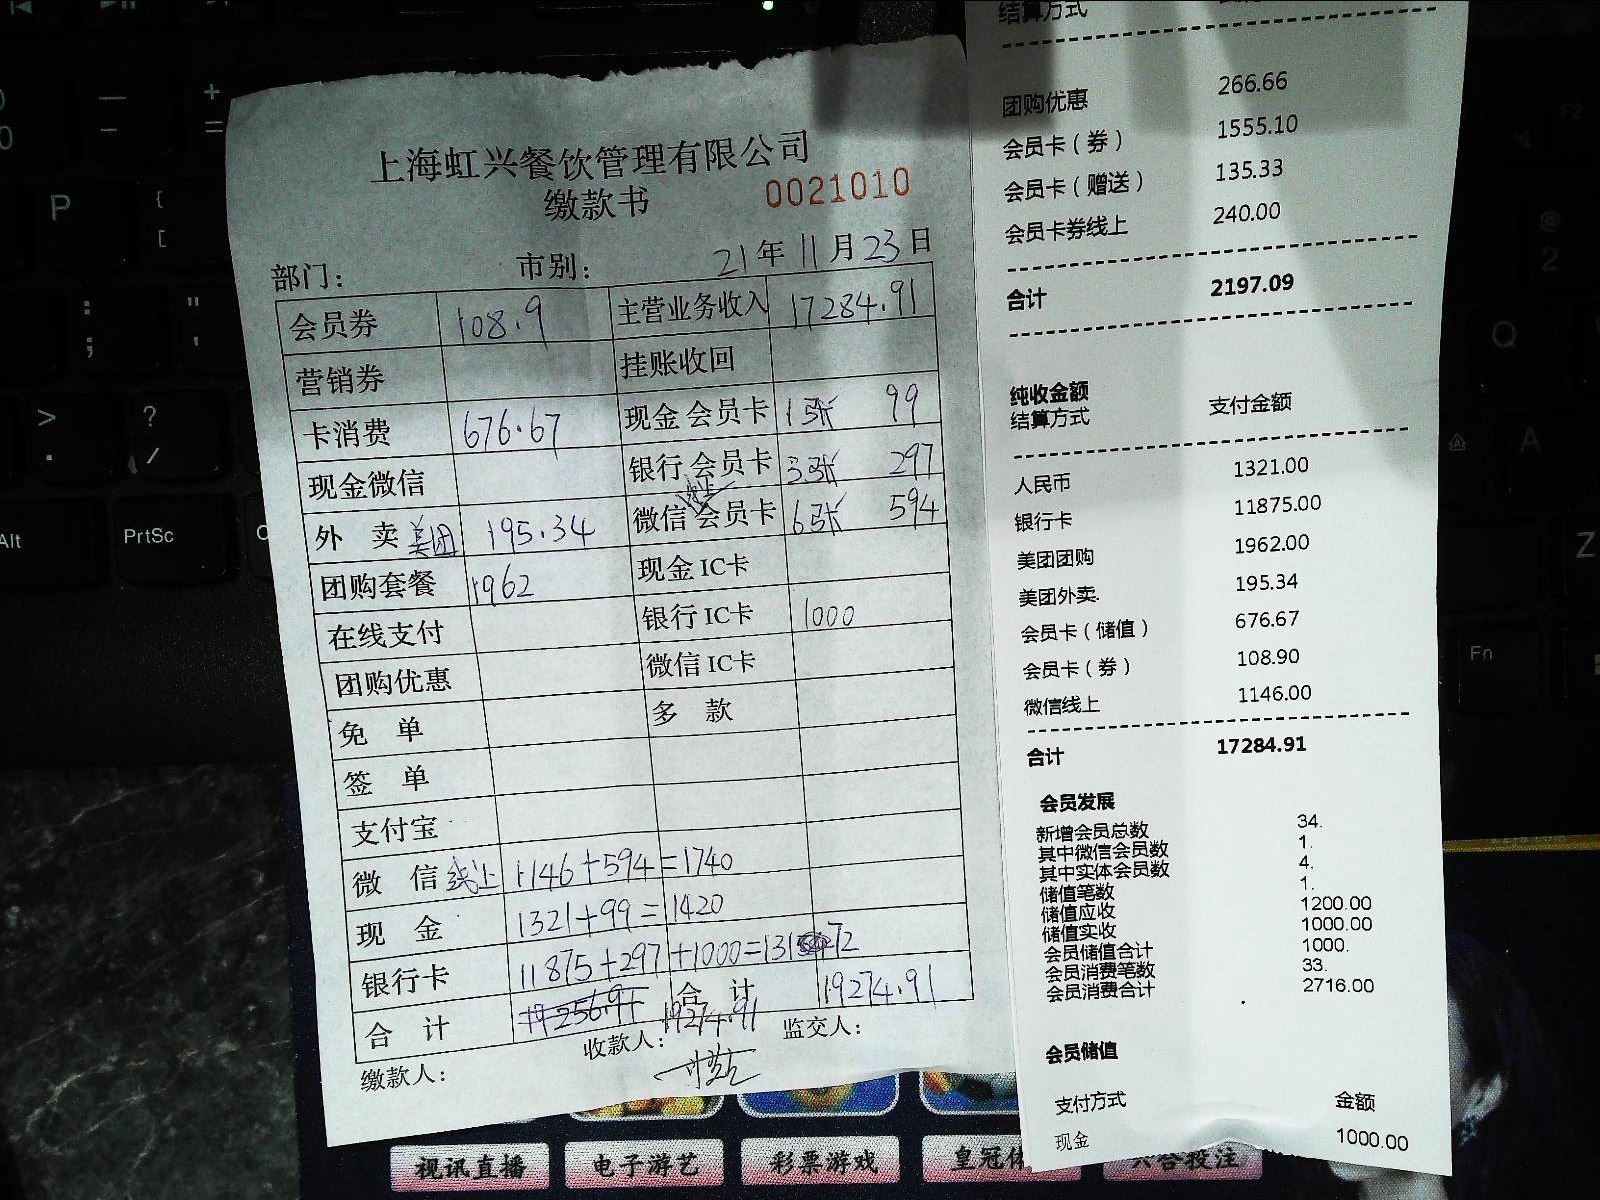 上海虹兴餐饮管理有限公司
缴款书 0021010
部门： 市别： 21年 11月 23日
会员券 108.9 主营业务收入 17284.91
营销券 挂账收回
卡消费 676.67 现金 会员卡 1张 99
现金微信 银行 会员卡 3张 297
外 卖 美团 195.34 微信 会员卡 6张 594
团购套餐 1962 现金 IC卡
在线支付 银行 IC卡 1000
团购优惠 微信 IC卡
免 单 多 款
签 单
支付宝
微 信 线上 1146+594=1740
现 金 1321+99=1420
银行卡 11875+297+1000=13172
合 计 19274.91 合 计 19274.91
缴款人： 收款人： 监交人：
结算方式
团购优惠 266.66
会员卡（券） 1555.10
会员卡（赠送） 135.33
会员卡券线上 240.00
合计 2197.09
纯收金额
结算方式 支付金额
人民币 1321.00
银行卡 11875.00
美团团购 1962.00
美团外卖. 195.34
会员卡（储值） 676.67
会员卡（券） 108.90
微信线上 1146.00
合计 17284.91
会员发展
新增会员总数 34.
其中微信会员数 1.
其中实体会员数 4.
储值笔数 1.
储值应收 1200.00
储值实收 1000.00
会员储值合计 1000.
会员消费笔数 33.
会员消费合计 2716.00
会员储值
支付方式 金额
现金 1000.00
P
{
[
+
=
:
;
"
'
>
.
?
/
Alt
PrtSc
Q
A
Z
Fn
@
2
F2
视讯直播 电子游艺 彩票游戏 皇冠体 六合投注